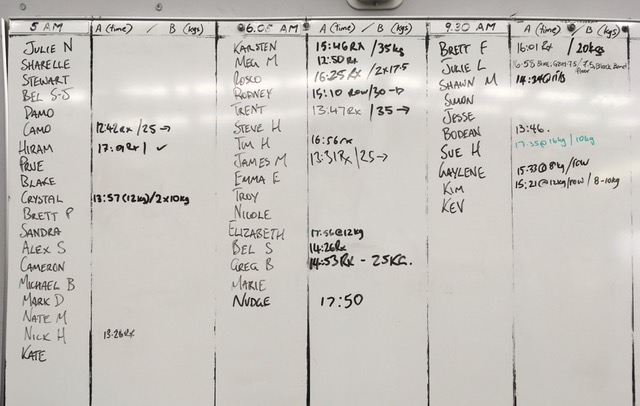 5 AM A (time) / B (kgs)
JULIE N
SHARELLE
STEWART
BEL S-J
DAMO
CAMO 12:42 RX / 25 →
HIRAM 17:01 RX / ✓
PRUE
BLAKE
CRYSTAL 13:57 (12kg) / 2x10kg
BRETT P
SANDRA
ALEX S
CAMERON
MICHAEL B
MARK D
NATE M
NICK H 13:26 RX
KATE
6.05 AM A (time) / B (kgs)
KARSTEN 15:46 RX / 35kg
MEG M 12:50 RX
ROSCO 16:25 RX / 2x17.5
RODNEY 15:10 ROW/30 →
TRENT 13:47 RX / 35 →
STEVE H
TIM H 16:56 RX
JAMES M 13:31 RX / 25 →
EMMA E
TROY
NICOLE
ELIZABETH 17:56 @12kg
BEL S 14:26 RX
GREG B 14:53 RX - 25KG.
MARIE
NUDGE 17:50
9.30 AM A (time) / B (kgs)
BRETT F 16:01 RX / 20kgs
JULIE L 16:58
SHAWN M 14:34
SIMON
JESSE
BODEAN 13:46.
SUE H 17:35 @16kg / 10kg
GAYLENE
KIM 15:33 @8kg/row
KEV 15:21 @12kg/row / 8-10kg